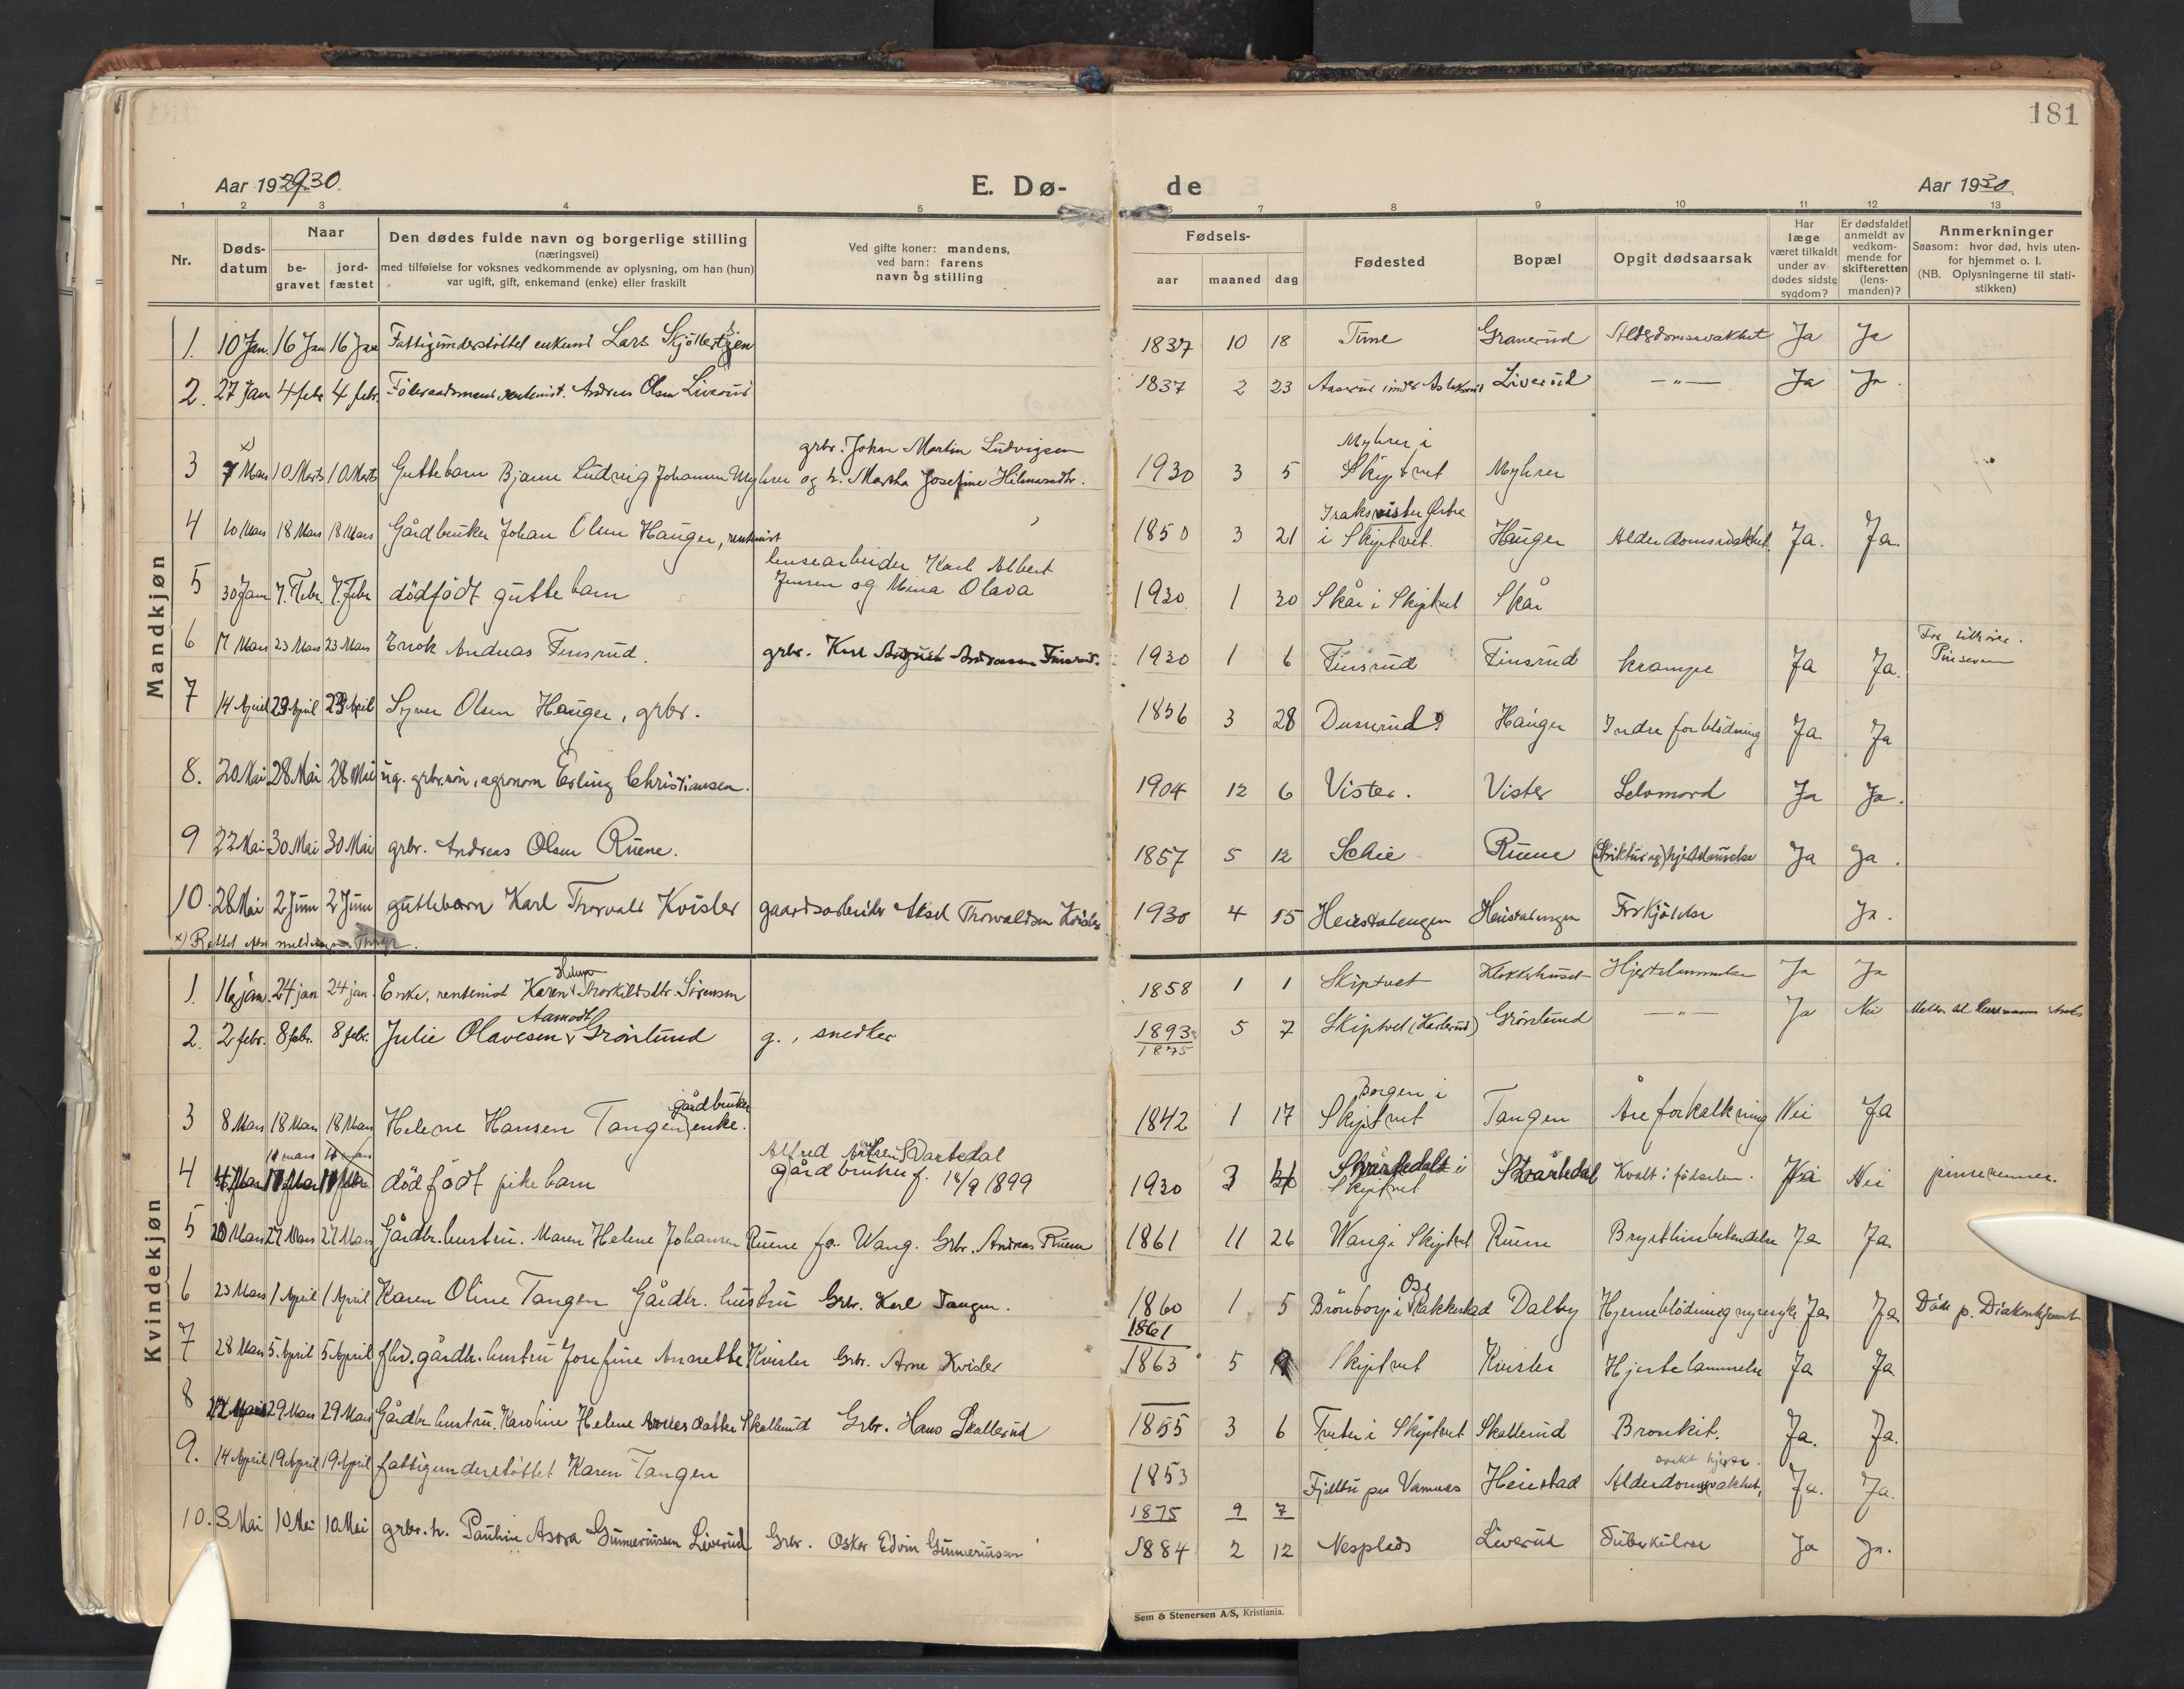 181
Aar 1930.
E. Dø-
de
Aar 1930.
1 2 3 4 5 6 7 8 9 10 11 12 13
Nr.
Døds-
datum
Naar
be-
gravet
jord-
fæstet
Den dødes fulde navn og borgerlige stilling
(næringsvei)
med tilføielse for voksnes vedkommende av oplysning, om han (hun)
var ugift, gift, enkemand (enke) eller fraskilt
Ved gifte koner: mandens,
ved barn: farens
navn og stilling
Fødsels-
aar
maaned
dag
Fødested
Bopæl
Opgit dødsaarsak
Har
læge
været tilkaldt
under av-
dødes sidste
sygdom?
Er dødsfaldet
anmeldt av
vedkom-
mende for
skifteretten
(lens-
manden)?
Anmerkninger
Saasom: hvor død, hvis uten-
for hjemmet o. l.
(NB. Oplysningerne til stati-
stikken)
Mandkjøn
1. 10 Jan. 16 Jan 16 Jan Fattigunderstøttet enkem. Lars 1837 10 18 Tune Granerud Alderdomssvakhet Ja Ja
2. 27 Jan 4 febr. 4 febr. Andreas Olsen Liverud 1837 2 23 Liverud —"— Ja Ja.
x)
grbr. Johan Martin Ludvigsen
Myhrer i
3 7 Mars 10 Marts 10 Marts Guttebarn Bjarne Ludvig Johansen Myhrer og h. Martha Josefine Hilmarsdtr. 1930 3 5 Skiptvet Myhrer
4 10 Mars 18 Mars 18 Mars Gårdbruker Johan Olsen Hauger, rentenist 1850 3 21 i Skiptvet. Hauger Alderdomssvakhet Ja. Ja.
lensearbeider Karl Albert
5 30 Jan 7. Febr. 7. Febr dödfödt guttebarn Jensen og Mina Olava 1930 1 30 Skår i Skiptvet Skår
6 17 Mars 23 Mars 23 Mars Enok Andreas Finsrud. grbr. Karl August Andreassen Finsrud. 1930 1 6 Finsrud Finsrud krampe Ja Ja.
7 14 April 23 April 23 April Syver Olsen Hauger, grbr. 1856 3 28 Hauger Indre forblödning Ja. Ja
8. 20 Mai 28 Mai 28 Mai ug. grbr.sön, agronom Erling Christiansen. 1904 12 6 Vister. Vister Selvmord Ja Ja.
9 22 Mai 30 Mai 30 Mai grbr. Andreas Olsen Ruene. 1857 5 12 Schie Ruene Ja Ja.
10. 28 Mai 2 Juni 2 Juni guttebarn Karl Thorvald Kvisler gaardsarbeider Aksel Thorvaldsen Kvisler 1930 4 15 Heiestadengen Heiestadengen Forkjölelse Ja.
x) Rettet
Kvindekjøn
1. 16 jan. 24 jan 24 jan. Enke, rentenist Karen Helene Thorkildsdtr. Sörensen 1858 1 1 Skiptvet Klokkerhuset Hjertelammelse Ja Ja
Aamodt
2. 2 febr. 8 febr. 8 febr. Julie Olavesen Grönlund g., snedker 1893 5 7 Skiptvet (Karlsrud) Grönlund —"— Ja Nei
1875
gårdbruker
Borgen i
3 8 Mars 18 Mars 18 Mars Helene Hansen Tangen, enke. 1842 1 17 Skiptvet Tangen Åreforkalkning Nei Ja
Alfred Svartedal
4 dödfödt pikebarn gårdbruker f. 14/9 1899 1930 3 4 Svartedal i Skiptvet Svartedal Kvalt i födselen. Nei Nei
5 20 Mars 27 Mars 27 Mars Gårdbr. hustru. Maren Helene Johansen Ruene fø. Wang. Grbr. Andreas Ruene 1861 11 26 Wang i Skiptvet Ruene Brysthinnebetendelse Ja Ja
6 23 Mars 1 April 1 April Karen Oline Tangen Gårdbr. hustru Grbr. Karl Tangen. 1860 1 5 Brönborg i Rakkestad Dalby Ja. Ja Död p. Diakonhjemmet
1861
7 28 Mars 5. April 5 April fhv. gårdbr. hustru Josefine Annette Kvisler Grbr. Arne Kvisler 1863 5 9 Skiptvet Kvisler Hjertelammelse Ja Ja
8 22 Mars 29 Mars 29 Mars Gårdbr. hustru. Karoline Helene Skallerud Grbr. Hans Skallerud 1855 3 6 Skiptvet Skallerud Bronkit. Ja. Ja.
9. 14 April 19 April 19 April fattigunderstöttet Karen Tangen 1853 Heiestad Alderdomssvakhet, svakt hjerte. Ja. Ja.
1875 9 7
10. 3 Mai 10 Mai 10 Mai grbr. h. Pauline Asora Gunneriussen Liverud Grbr. Oskar Edvin Gunneriussen 1884 2 12 Nesplads Liverud Tuberkulose Ja Ja.
Sem & Stenersen A/S, Kristiania.